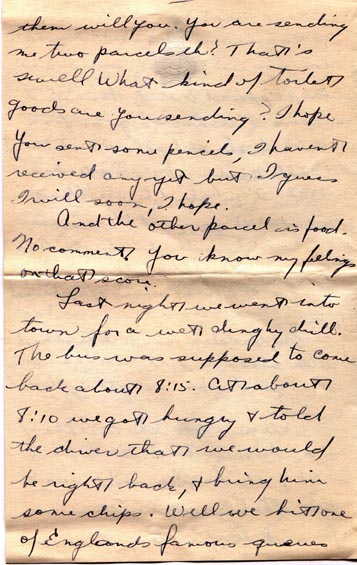 them will you. You are sending
me two parcels eh? That's
swell What kind of toilet
goods are you sending? I hope
you sent some pencils, I haven't
received any yet but I guess
I will soon, I hope.
And the other parcel is food.
No comment. You know my feelings
on that score.
Last night we went into
town for a wet dinghy drill.
The bus was supposed to come
back about 8:15. At about
8:10 we got hungry & told
the driver that we would
be right back, & bring him
some chips. Well we hit one
of Englands famous queues